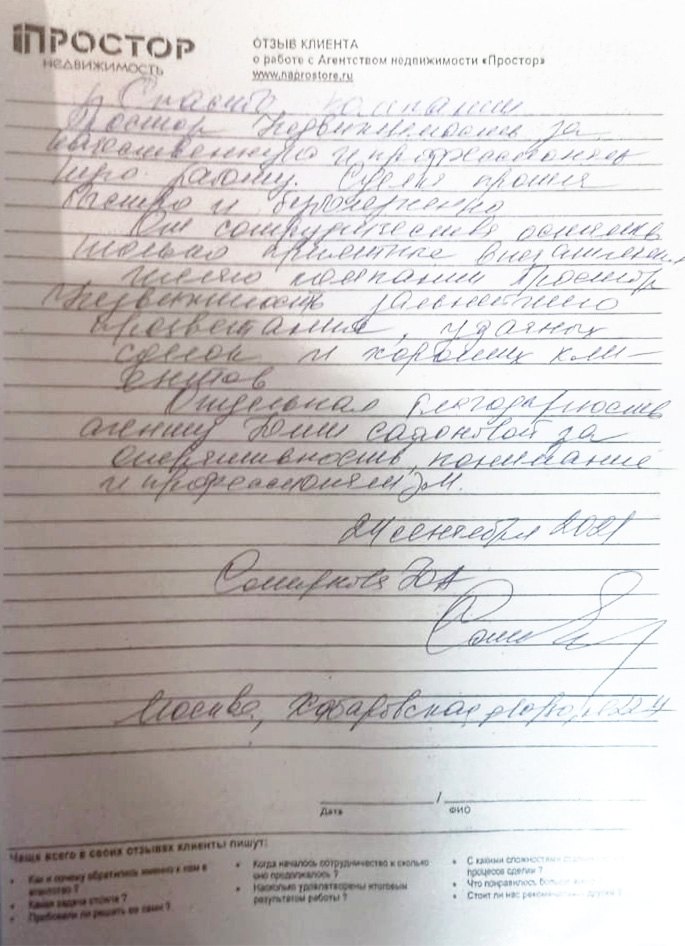 ПРОСТОР
НЕДВИЖИМОСТЬ
ОТЗЫВ КЛИЕНТА
о работе с Агентством недвижимости «Простор»
www.naprostore.ru
Спасибо компании
Простор Недвижимость за
качественную и профессиональ
ную работу. Сделка прошла
быстро и
От сотрудничества остались
только приятные впечатления
компании Простор
Недвижимость дальнейшего
процветания, удачных
сделок и хороших кли-
ентов
Отдельная благодарность
агенту Юлии Садоновой за
оперативность, понимание
и профессионализм.
24 сентября 2021
ЮА
Москва, Хабаровская
Дата / ФИО
Чаще всего в своих отзывах клиенты пишут:
• Как и почему обратились именно к нам в
агентство ?
• Какая задача стояла ?
• Пробовали ли решать ее сами ?
• Когда началось сотрудничество и сколько
оно продолжалось ?
• Насколько удовлетворены итоговым
результатом работы ?
• С какими сложностями
процессе сделки ?
• Что понравилось больше
• Стоит ли нас рекомендовать другим ?